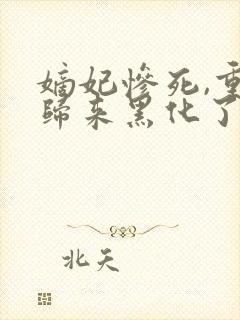 嫡妃慘死,重
歸来黑化了
北天